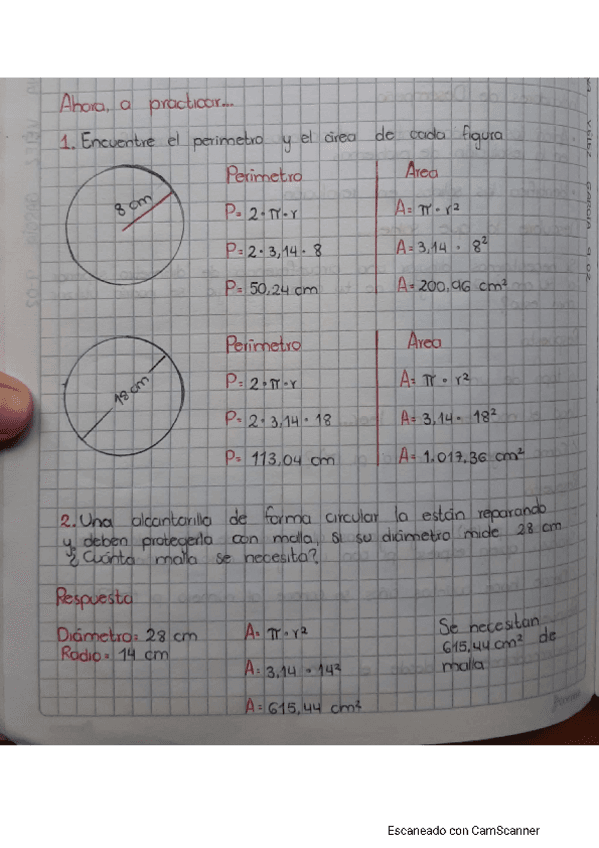 Ahora, a practicar...
1. Encuentre el perimetro y el área de cada figura
8 cm
Perimetro
P= 2·π·r
P= 2·3,14·8
P= 50,24 cm
Area
A= π·r²
A= 3,14 · 8²
A= 200,96 cm²
18 cm
Perimetro
P= 2·π·r
P= 2·3,14·18
P= 113,04 cm
Area
A= π·r²
A= 3,14· 18²
A= 1.017,36 cm²
2. Una alcantarilla de forma circular la están reparando
y deben protegerla con malla, si su diámetro mide 28 cm
¿Cuánta malla se necesita?
Respuesta
Diámetro= 28 cm
Radio= 14 cm
A= π·r²
A= 3,14 · 14²
A= 615,44 cm²
Se necesitan
615,44 cm² de
malla
Escaneado con CamScanner